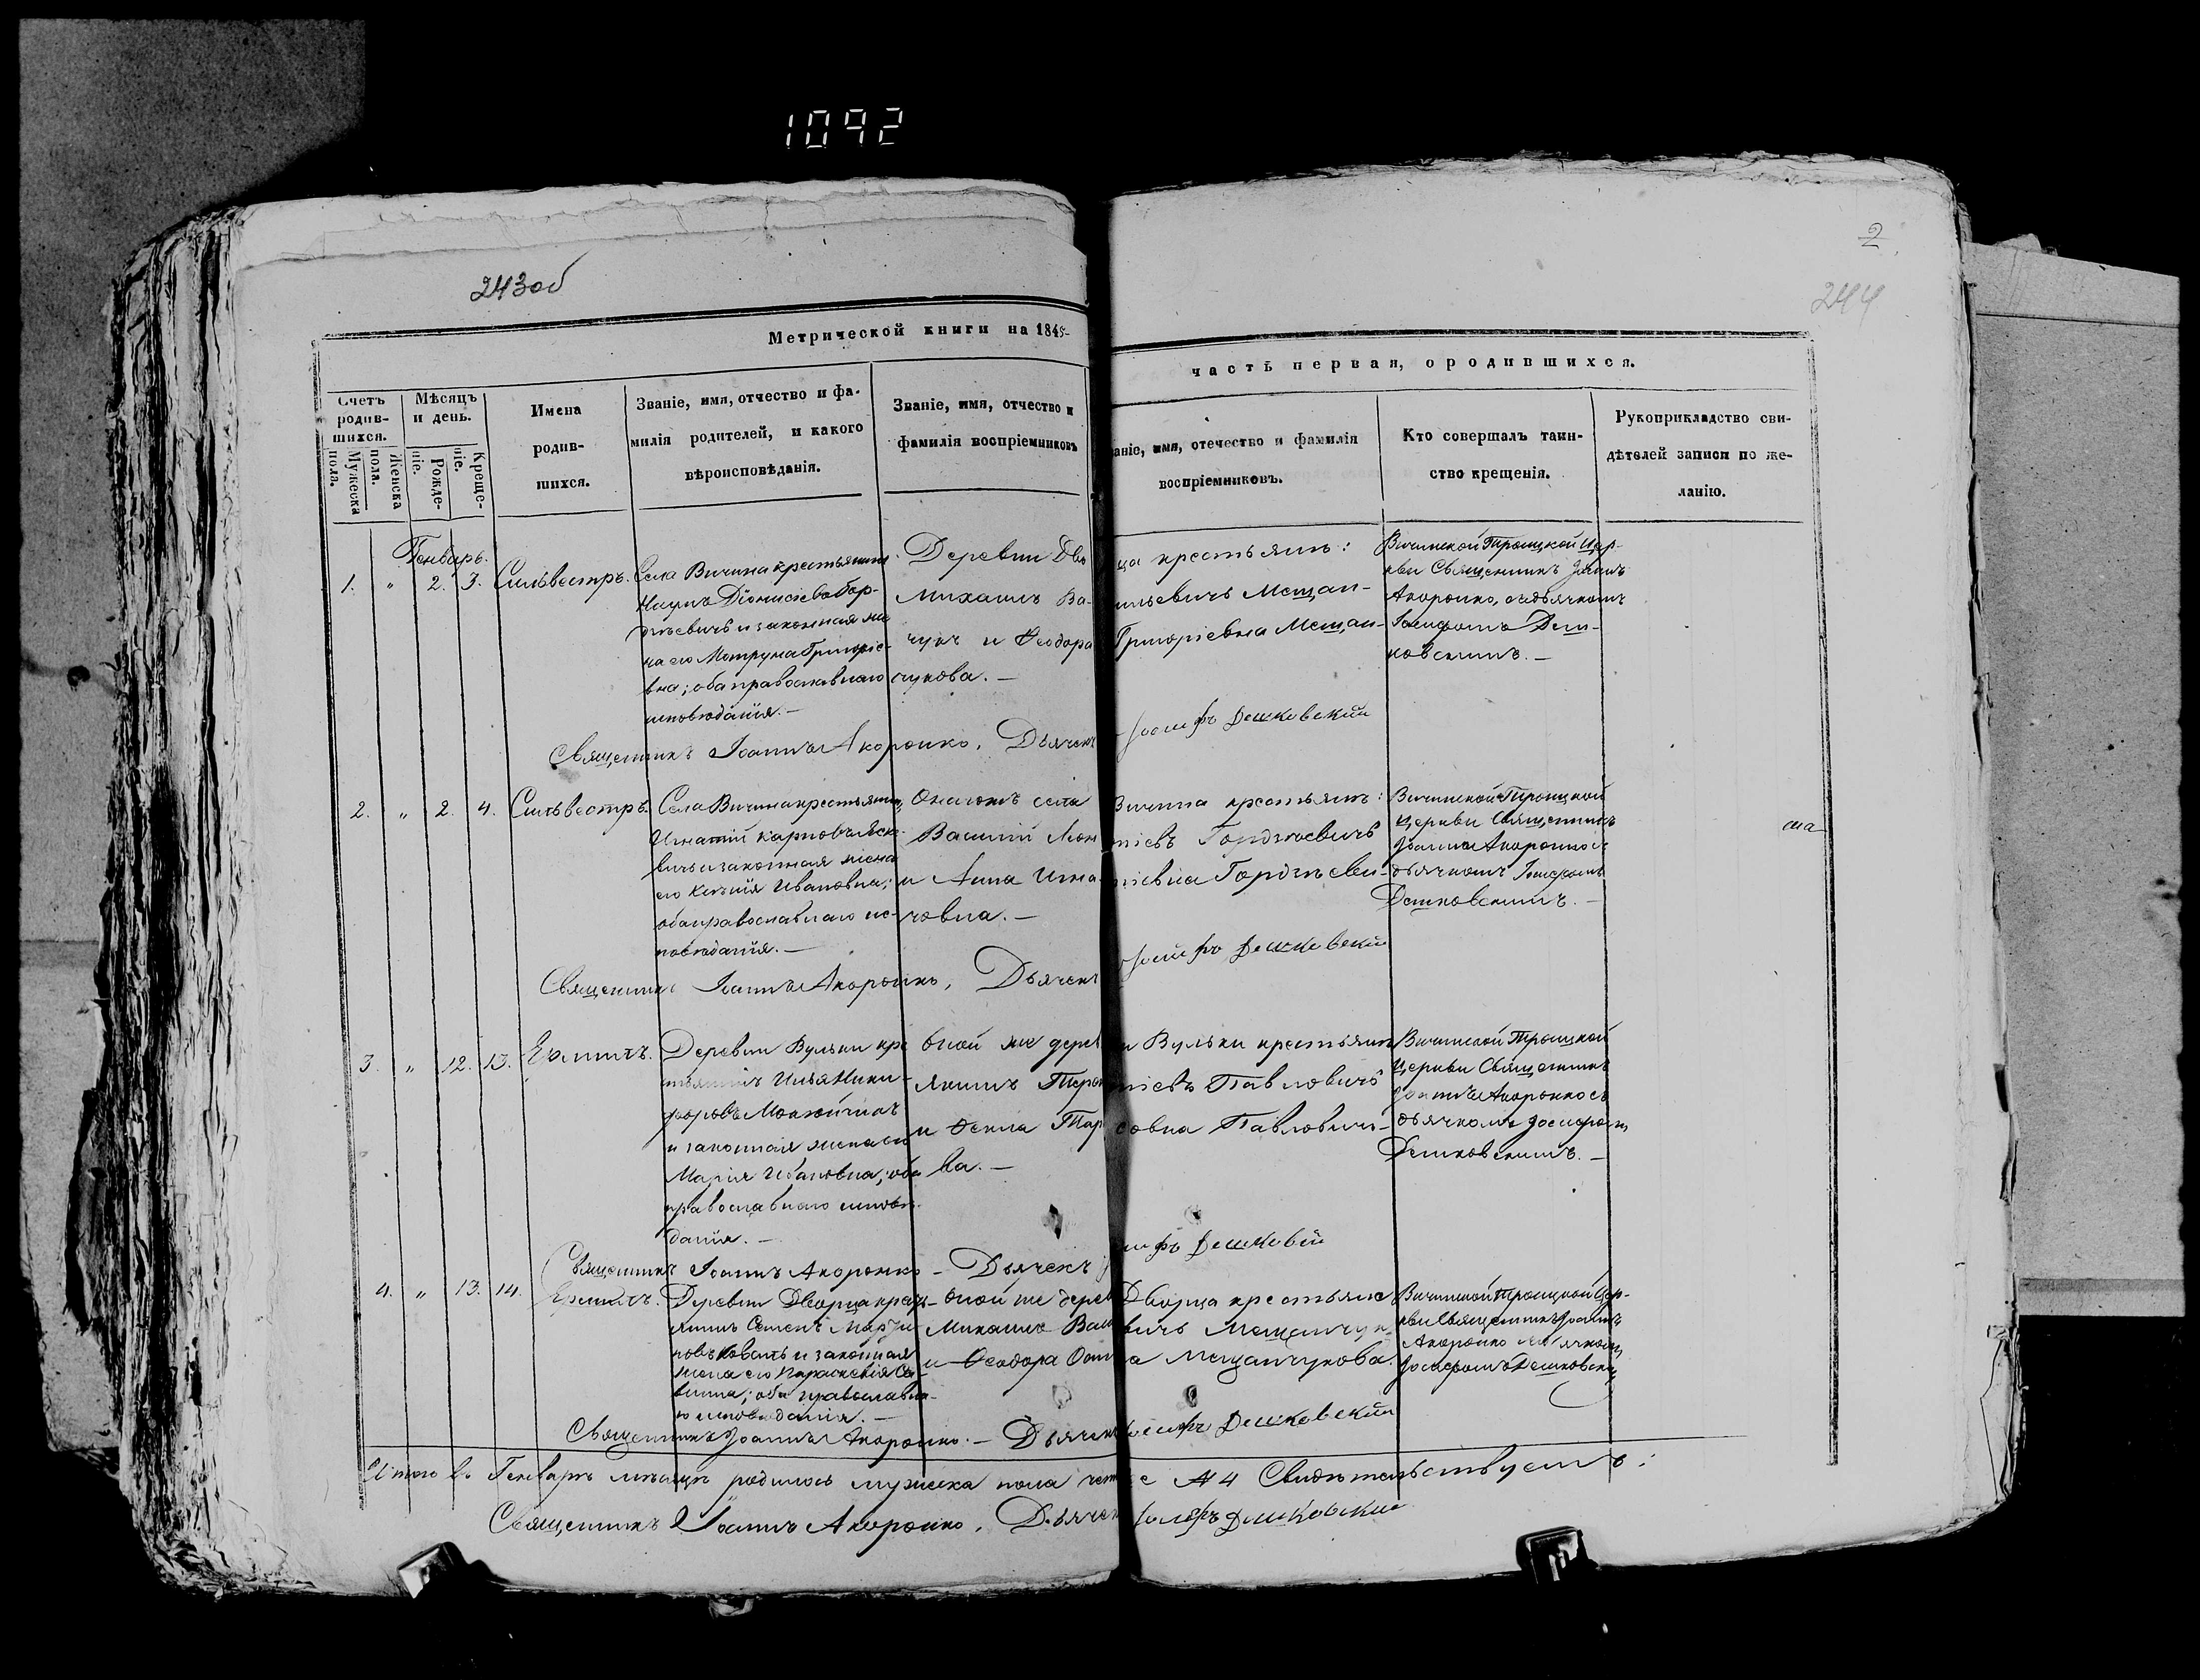 1092
243об
2
244
Метрической книги на 1845
часть первая, ородившихся.
Счетъ родив-шихся.
Мужеска пола.
Женска пола.
Мѣсяцъ и день.
Рожде-ніе.
Креще-ніе.
Имена
родив-
шихся.
Званіе, имя, отчество и фа-
милія родителей, и какого
вѣроисповѣданія.
Званіе, имя, отчество и
фамилія воспріемниковъ
аніе, имя, отечество и фамилія
воспріемниковъ.
Кто совершалъ таин-
ство крещенія.
Рукоприкладство сви-
дѣтелей записи по же-
ланію.
Генварь.
1. " 2. 3. Сильвестръ.
Села Вичина крестьянинъ
Наумъ Діонисіевъ Гор-
дѣевичъ и законная же
на его Мотруна Григоріе-
вна; оба православнаго
исповѣданія.—
Деревни Дво ца крестьяне:
Михаилъ Ва- ильевичъ Мещан-
чукъ и Ѳеодора Григоріевна Мещан-
чукова.—
Вичинской Троицкой Цер-
кви Священникъ Іоаннъ
Акоронко, съ дьячкомъ
Іосифомъ Деш-
ковскимъ.—
Священникъ Іоаннъ Акоронко. Дьячекъ Іосифъ Дешковскій
2. " 2. 4. Сильвестръ.
Села Вичина крестьянинъ
Игнатій Карповъ
вичъ и законная жена
его Ивановна;
оба православнаго ис-
повѣданія.—
села Вичина крестьяне:
Василій Гордѣевичъ
и Анна Гордѣеви-
човна.—
Вичинской Троицкой
Церкви Священникъ
Іоаннъ Акоронко съ
дьячкомъ Іосифомъ
Дешковскимъ.—
Священникъ Іоаннъ Акоронко, Дьячекъ Іосифъ Дешковскій
3. " 12. 13.
Деревни Вульки кре
стьянинъ Илья Ники-
форовъ
и законная жена его
Марія Ивановна; оба
православнаго исповѣ-
данія.—
оной же дерев и Вульки крестьяне
Якимъ Павловичъ
и Ѳекла Тар совна Павлович-
ва.—
Вичинской Троицкой
Церкви Священникъ
Іоаннъ Акоронко съ
дьячкомъ Іосифомъ
Дешковскимъ.—
Священникъ Іоаннъ Акоронко — Дьячекъ ифъ Дешковскій
4. " 13. 14.
Деревни Дворца крест-
янинъ Семенъ Марти
новъ Коваль и законная
жена его Параскевія Са-
вина; оба православна-
го исповѣданія.—
оной же дерев Дворца крестьяне
Михаилъ Васи вичъ Мещанчукъ
и Ѳеодора Мещанчукова.
Вичинской Троицкой Цер-
кви Священникъ Іоаннъ
Акоронко дьячкомъ
Іосифомъ Дешковски
Священникъ Іоаннъ Акоронко.— Дьячекъ Іосифъ Дешковскій
Итого въ Генварѣ мѣсяцѣ родилось мужеска пола чет е № 4 Свидѣтельствуемъ:
Священникъ Іоаннъ Акоронко, Дьячек Іосифъ Дешковскій